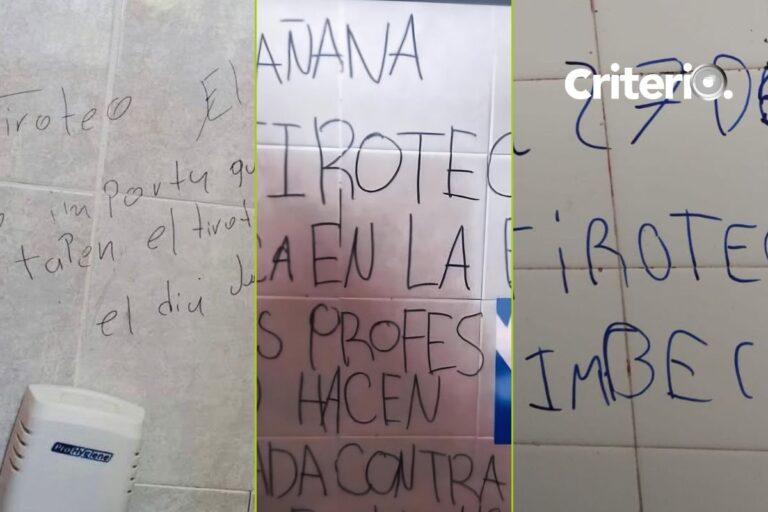 Tiroteo El
importa qu
tapen el tirot
el dia
ProHygiene
AÑANA
TIROTEO
CA EN LA
S PROFES
HACEN
ADA CONTRA
Criterio.
27 DE
TIROTEO
IMBEC